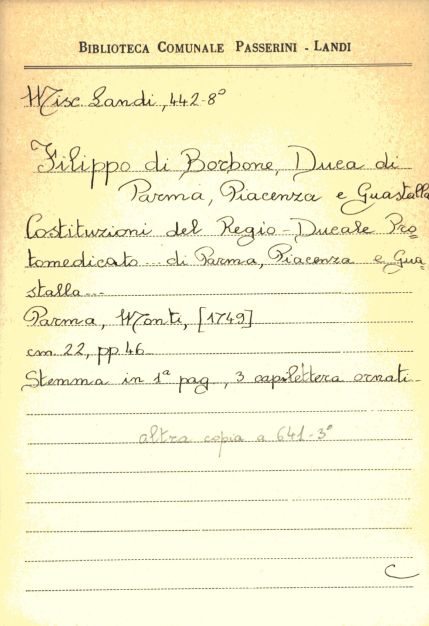 BIBLIOTECA COMUNALE PASSERINI - LANDI
Misc. Landi, 442-8°
Filippo di Borbone, Duca di
Parma, Piacenza e Guastalla
Costituzioni del Regio-Ducale Pro-
tomedicato ... di Parma, Piacenza e Gua-
stalla...
Parma, Monti, [1749]
cm 22, pp. 46
Stemma in 1ª pag., 3 capilettera ornati-
altra copia a 641-3°
C